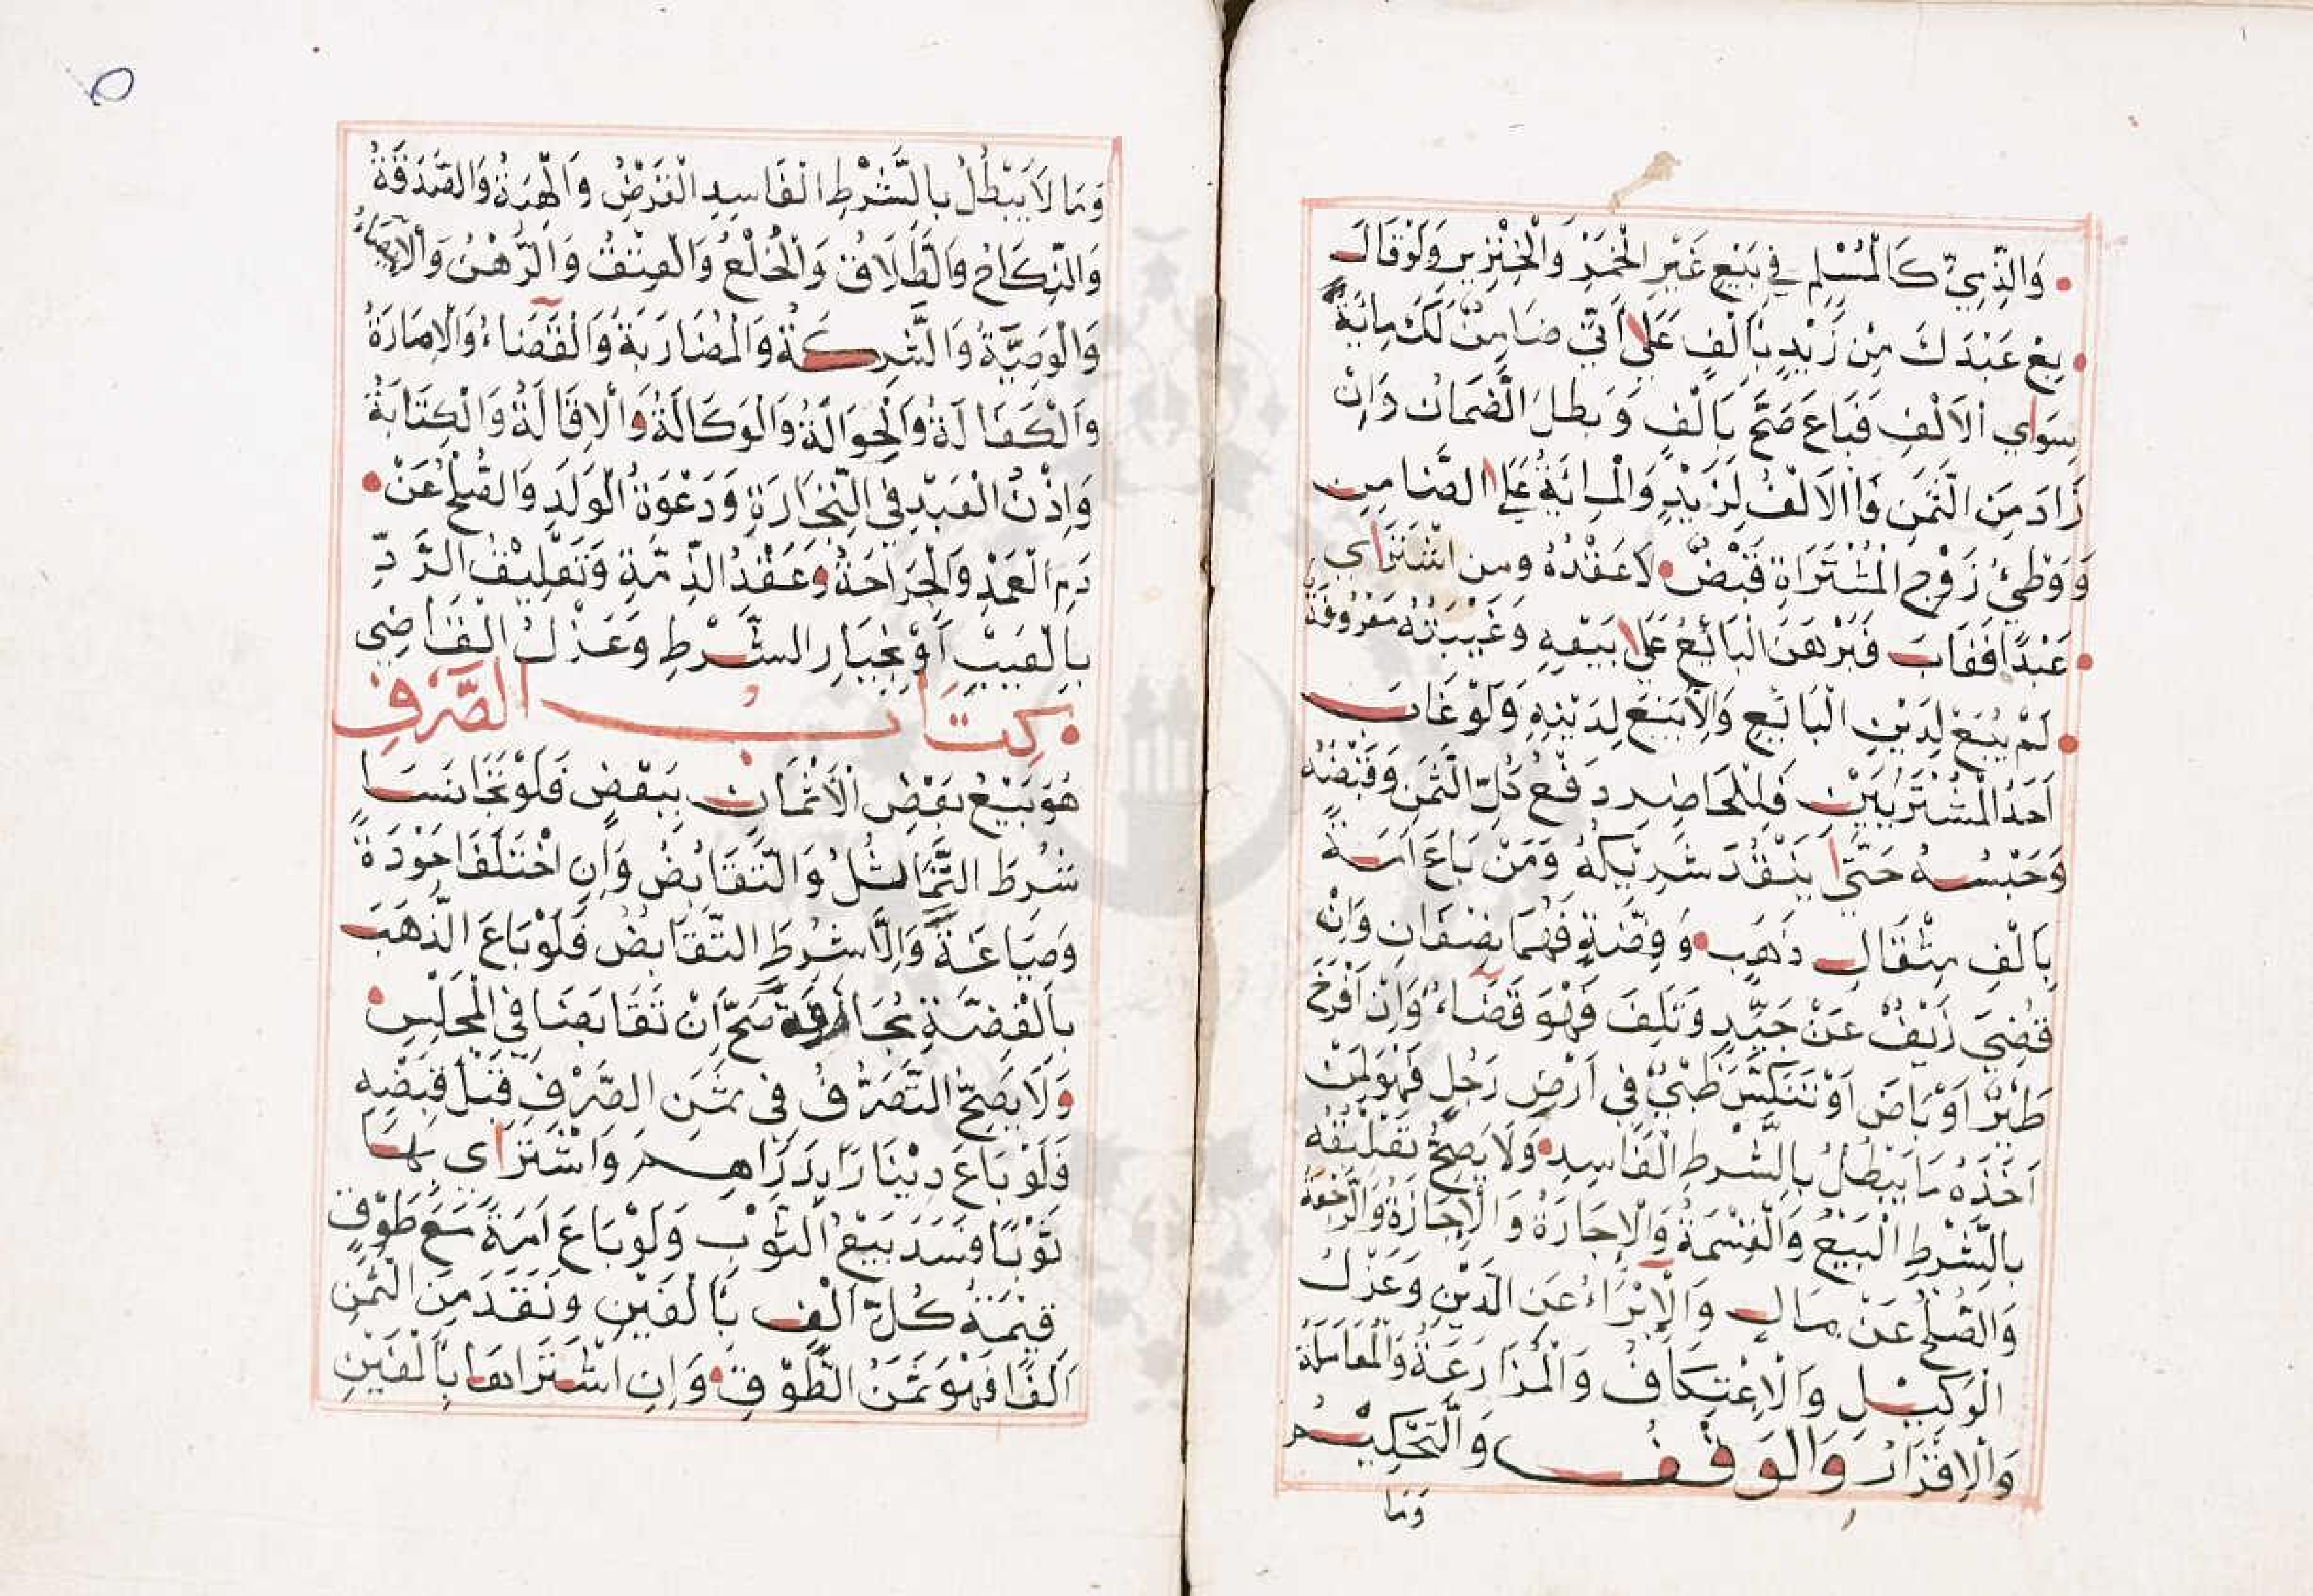 وَالذِّمِيُّ كَالْمُسْلِمِ فِي بَيْعِ غَيْرِ الْخَمْرِ وَالْخِنْزِيرِ وَلَوْ قَالَ
بِعْ عَبْدَكَ مِنْ زَيْدٍ بِاَلْفٍ عَلَى اَنِّي ضَامِنٌ لَكَ مِائَةً
سِوَاي الاَلْفِ فَبَاعَ صَحَّ بِاَلْفٍ وَبَطلَ الضَّمَانُ وَاِنْ
زَادَ مِنَ الثَّمَنِ فَالاَلْفُ لِزَيْدٍ وَالْمِائَةُ عَلَى الضَّامِنِ
وَوَطْيُ زَوْجِ الْمُشْتَرَاةِ قَبْضٌ لاَ عَقْدُهُ ومن اشْتَرَاي
عَبْدًا فَغَابَ فَبَرْهَنَ الْبَائِعُ عَلَى بَيْعِهِ وَغَيْبَتُهُ مَعْرُوفَة
لَمْ يُبَعْ لِدَيْنِ الْبَائِعِ وَاِلاَّ بِيْعَ لِدَيْنِهِ وَلَوْ غَابَ
اَحَدُ الْمُشْتَرِيَيْنِ فَلِلْحَاضِرِ دَفْعُ كُلِّ الثَّمَنِ وَقَبْضُهُ
وَحَبْسُهُ حَتَّى يَنْقُدَ شَرِيكُهُ وَمَنْ بَاعَ اَمَةً
بِاَلْفِ مِثْقَالِ ذَهَبٍ وَفِضَّةٍ فَهُمَا نِصْفَانِ وَاِنْ
قُضِيَ زَيْفٌ عَنْ جَيِّدٍ وَتَلِفَ فَهُوَ قَضَاءٌ وَاِنْ اَفْرَخَ
طَيْرٌ اَوْ بَاضَ اَوْ تَكَنَّسَ ظَبْيٌ فِي اَرْضِ رَجُلٍ فَهُوَ لِمَنْ
اَخَذَهُ مَا يَبْطُلُ بِالشَّرْطِ الْفَاسِدِ وَلَا يَصِحُّ تَعْلِيْقُهُ
بِالشَّرْطِ الْبَيْعُ وَالْقِسْمَةُ وَالْاِجَارَةُ وَالْاِجَازَةُ وَالرَّجْعَةُ
وَالصُّلْحُ عَنْ مَالٍ وَالْاِبْرَاءُ عَنِ الدَّيْنِ وَعَزْلُ
الْوَكِيْلِ وَالْاِعْتِكَافُ وَالْمُزَارَعَةُ وَالْمُعَامَلَةُ
وَالْاِقْرَارُ وَالْوَقْفُ وَالتَّحْكِيْمُ
وَمَا
وَمَا لاَ يَبْطُلُ بِالشَّرْطِ الْفَاسِدِ الْقَرْضُ وَالْهِبَةُ وَالصَّدَقَةُ
وَالنِّكَاحُ وَالطَّلَاقُ وَالْخُلْعُ وَالْعِتْقُ وَالرَّهْنُ وَالْاِيصَاءُ
وَالْوَصِيَّةُ وَالشِّرِكَةُ وَالْمُضَارَبَةُ وَالْقَضَاءُ وَالْاِمَارَةُ
وَالْكَفَالَةُ وَالْحِوَالَةُ وَالْوَكَالَةُ وَالْاِقَالَةُ وَالْكِتَابَةُ
وَاِذْنُ الْعَبْدِ فِي التِّجَارَةِ وَدَعْوَةُ الْوَلَدِ وَالصُّلْحُ عَنْ
دَمِ الْعَمْدِ وَالْجِرَاحَةُ وَعَقْدُ الذِّمَّةِ وَتَعْلِيْقُ الرَّدِّ
بِالْعَيْبِ اَوْ بِخِيَارِ الشَّرْطِ وَعَزْلُ الْقَاضِي
كِتَابُ الصَّرْفِ
هُوَ بَيْعُ بَعْضِ الْاَثْمَانِ بِبَعْضٍ فَلَوْ تَجَانَسَا
شُرِطَ التَّمَاثُلُ وَالتَّقَابُضُ وَاِنِ اخْتَلَفَا جَوْدَةً
وَصِيَاغَةً وَاِلَّا شُرِطَ التَّقَابُضُ فَلَوْ بَاعَ الذَّهَبَ
بِالْفِضَّةِ مُجَازَفَةً صَحَّ اِنْ تَقَابَضَا فِي الْمَجْلِسِ
وَلَا يَصِحُّ التَّصَرُّفُ فِي ثَمَنِ الصَّرْفِ قَبْلَ قَبْضِهِ
فَلَوْ بَاعَ دِيْنَارًا بِدَرَاهِمَ وَاشْتَرَاي بِهَا
ثَوْبًا فَسَدَ بَيْعُ الثَّوْبِ وَلَوْ بَاعَ اَمَةً مَعَ طَوْقٍ
قِيْمَةُ كُلٍّ اَلْفٌ بِاَلْفَيْنِ وَنَقَدَ مِنَ الثَّمَنِ
اَلْفًا فَهُوَ ثَمَنُ الطَّوْقِ وَاِنِ اشْتَرَاهَا بِاَلْفَيْنِ